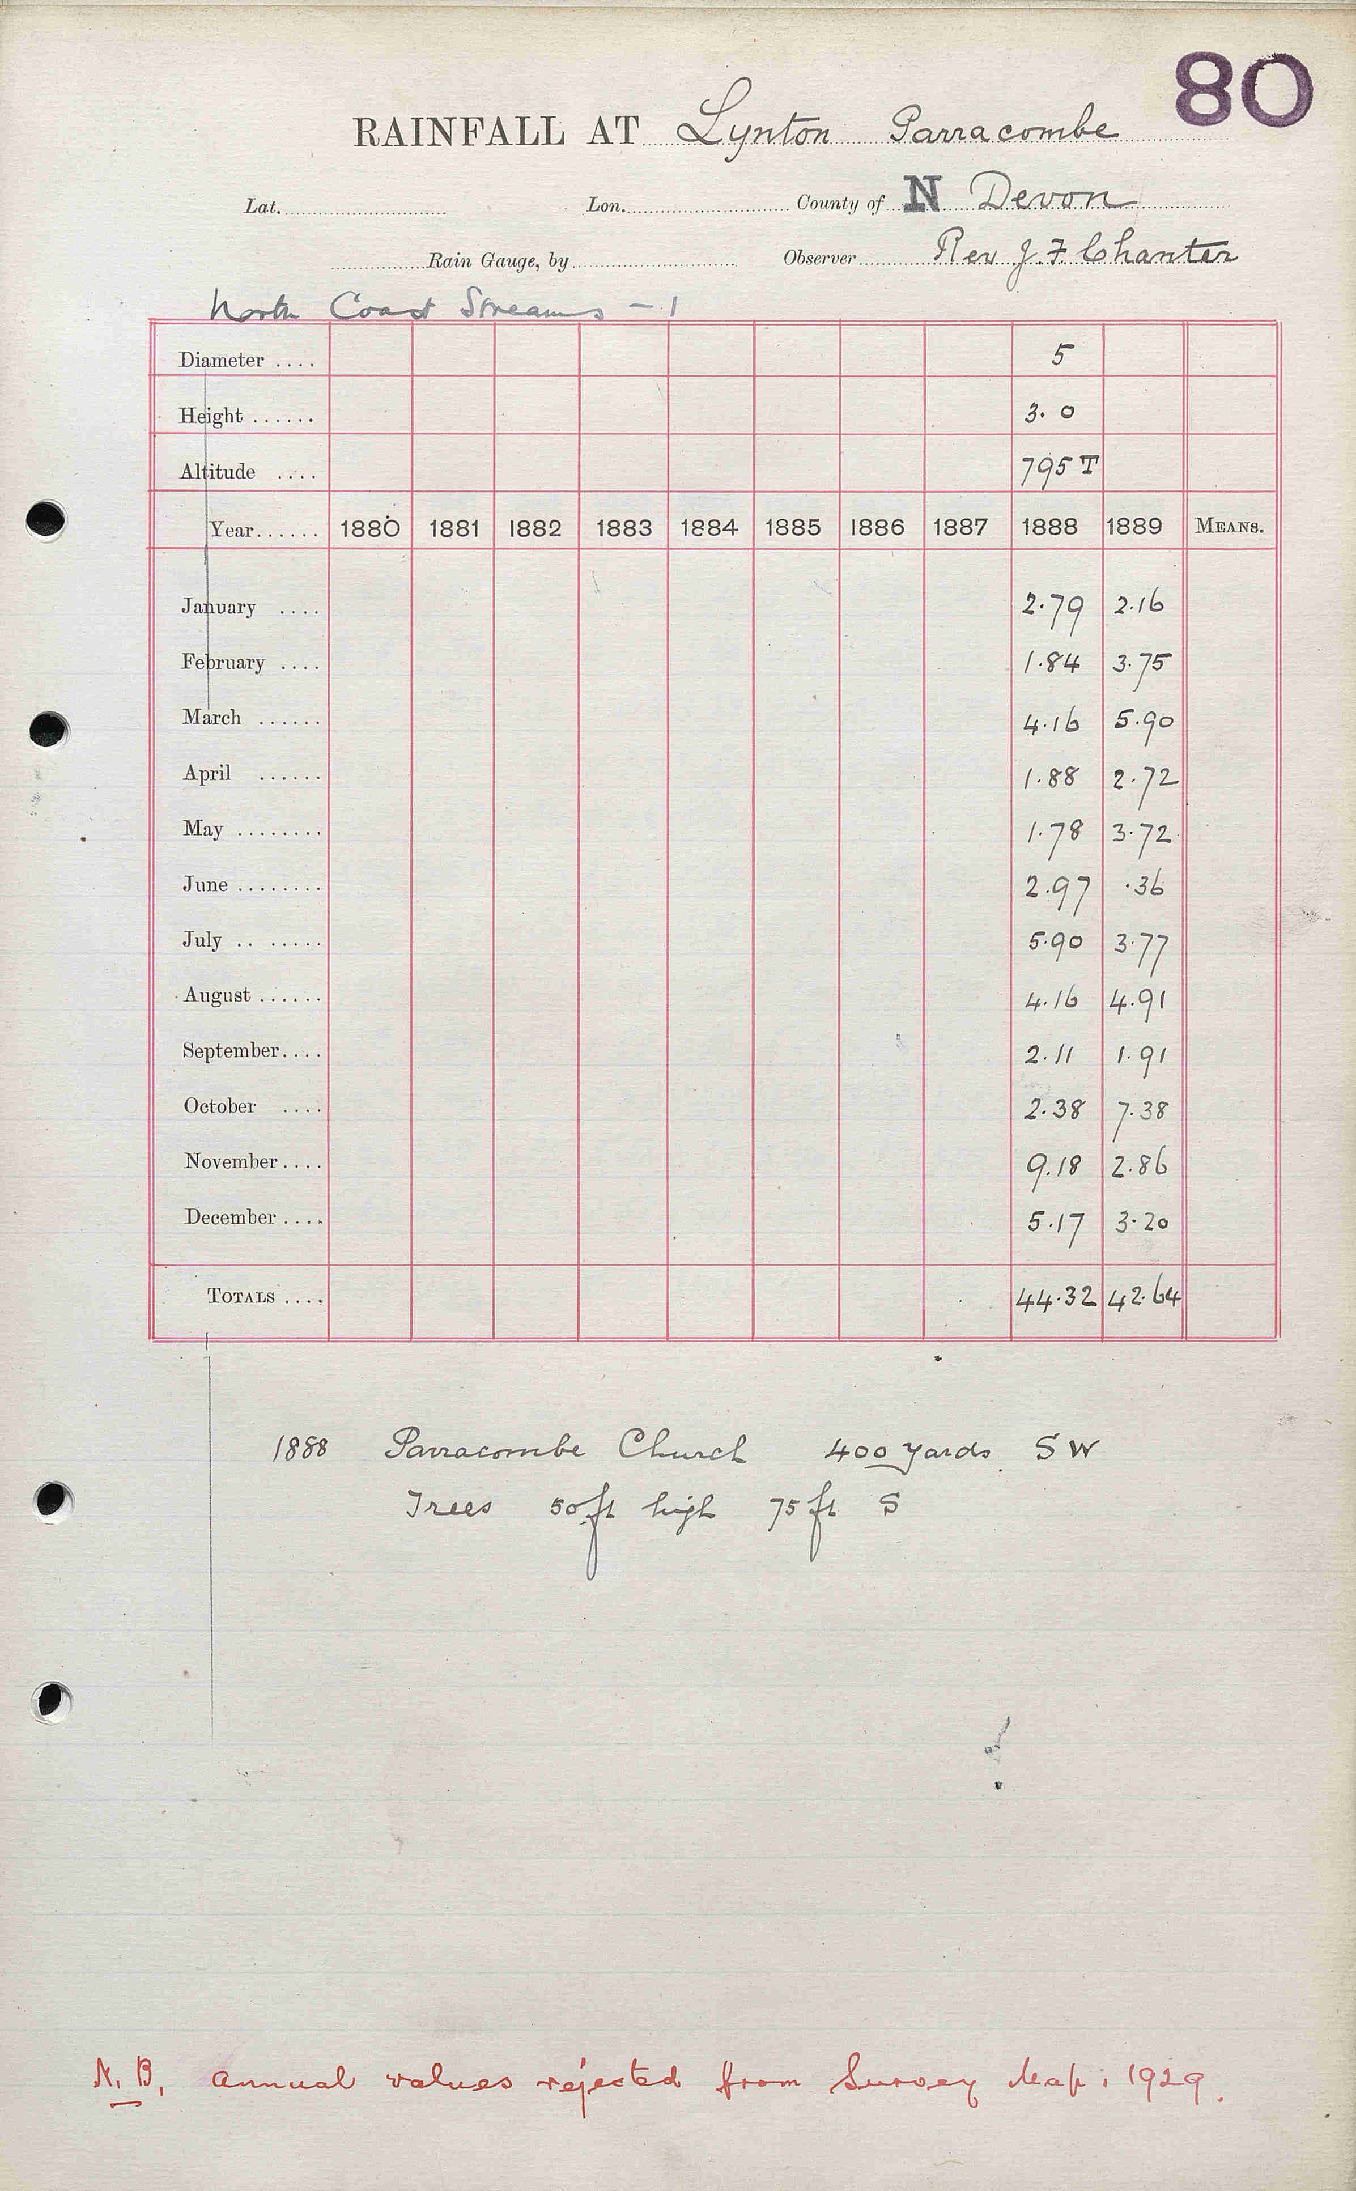 80
RAINFALL AT Lynton Parracombe
Lat. Lon. County of N Devon
Rain Gauge, by Observer Rev J. F Chanter
North Coast Streams - 1
Diameter .... 5
Height ...... 3. 0
Altitude .... 795 T
Year...... 1880 1881 1882 1883 1884 1885 1886 1887 1888 1889 MEANS.
January .... 2.79 2.16
February .... 1.84 3.75
March ...... 4.16 5.90
April ...... 1.88 2.72
May ........ 1.78 3.72
June ........ 2.97 .36
July .. ...... 5.90 3.77
August ...... 4.16 4.91
September.... 2.11 1.91
October .... 2.38 7.38
November.... 9.18 2.86
December .... 5.17 3.20
TOTALS .... 44.32 42.64
1888 Parracombe Church 400 yards SW
Trees 50ft high 75ft S
N. B. Annual values rejected from Survey Map. 1929.